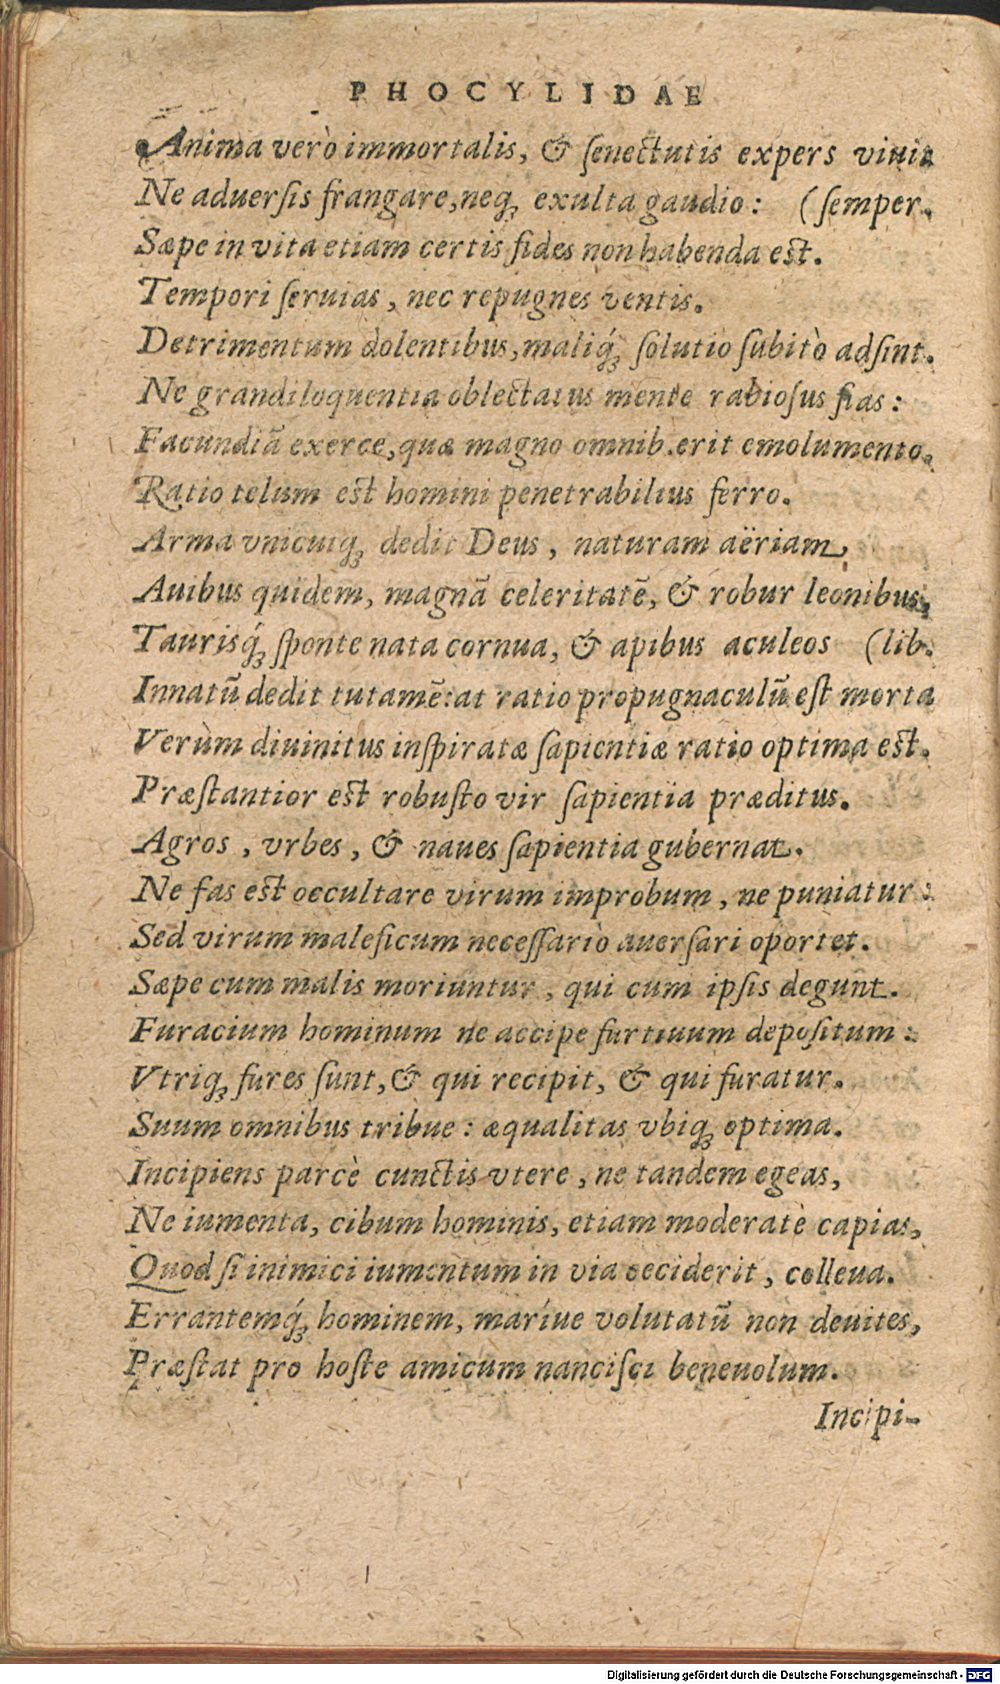 PHOCYLIDAE
Anima verò immortalis, & ſenectutis expers viuit
Ne aduerſis frangare, neq; exulta gaudio: (ſemper.
Sæpe in vita etiam certis fides non habenda est.
Tempori ſeruias, nec repugnes ventis.
Detrimentum dolentibus, maliq́; ſolutio ſubitò adſint.
Ne grandiloquentia oblectatus mente rabioſus fias:
Facundiã exerce, quæ magno omnib. erit emolumento.
Ratio telum est homini penetrabilius ferro.
Arma vnicuiq; dedit Deus, naturam aëriam,
Auibus quidem, magnã celeritatẽ, & robur leonibus,
Taurisq́; ſponte nata cornua, & apibus aculeos (lib.
Innatũ dedit tutamẽ: at ratio propugnaculũ eſt morta
Verùm diuinitus inſpiratæ ſapientiæ ratio optima est.
Præſtantior est robuſto vir ſapientia præditus.
Agros, vrbes, & naues ſapientia gubernat.
Ne fas est occultare virum improbum, ne puniatur:
Sed virum maleficum neceſſariò auerſari oportet.
Sæpe cum malis moriuntur, qui cum ipſis degunt.
Furacium hominum ne accipe furtiuum depoſitum:
Vtriq; fures ſunt, & qui recipit, & qui furatur.
Suum omnibus tribue: æqualitas vbiq; optima.
Incipiens parcè cunctis vtere, ne tandem egeas,
Ne iumenta, cibum hominis, etiam moderatè capias,
Quod ſi inimici iumentum in via ceciderit, colleua.
Errantemq́; hominem, maríue volutatũ non deuites,
Præſtat pro hoſte amicum nanciſci beneuolum.
Incipi-
Digitalisierung gefördert durch die Deutsche Forschungsgemeinschaft - DFG